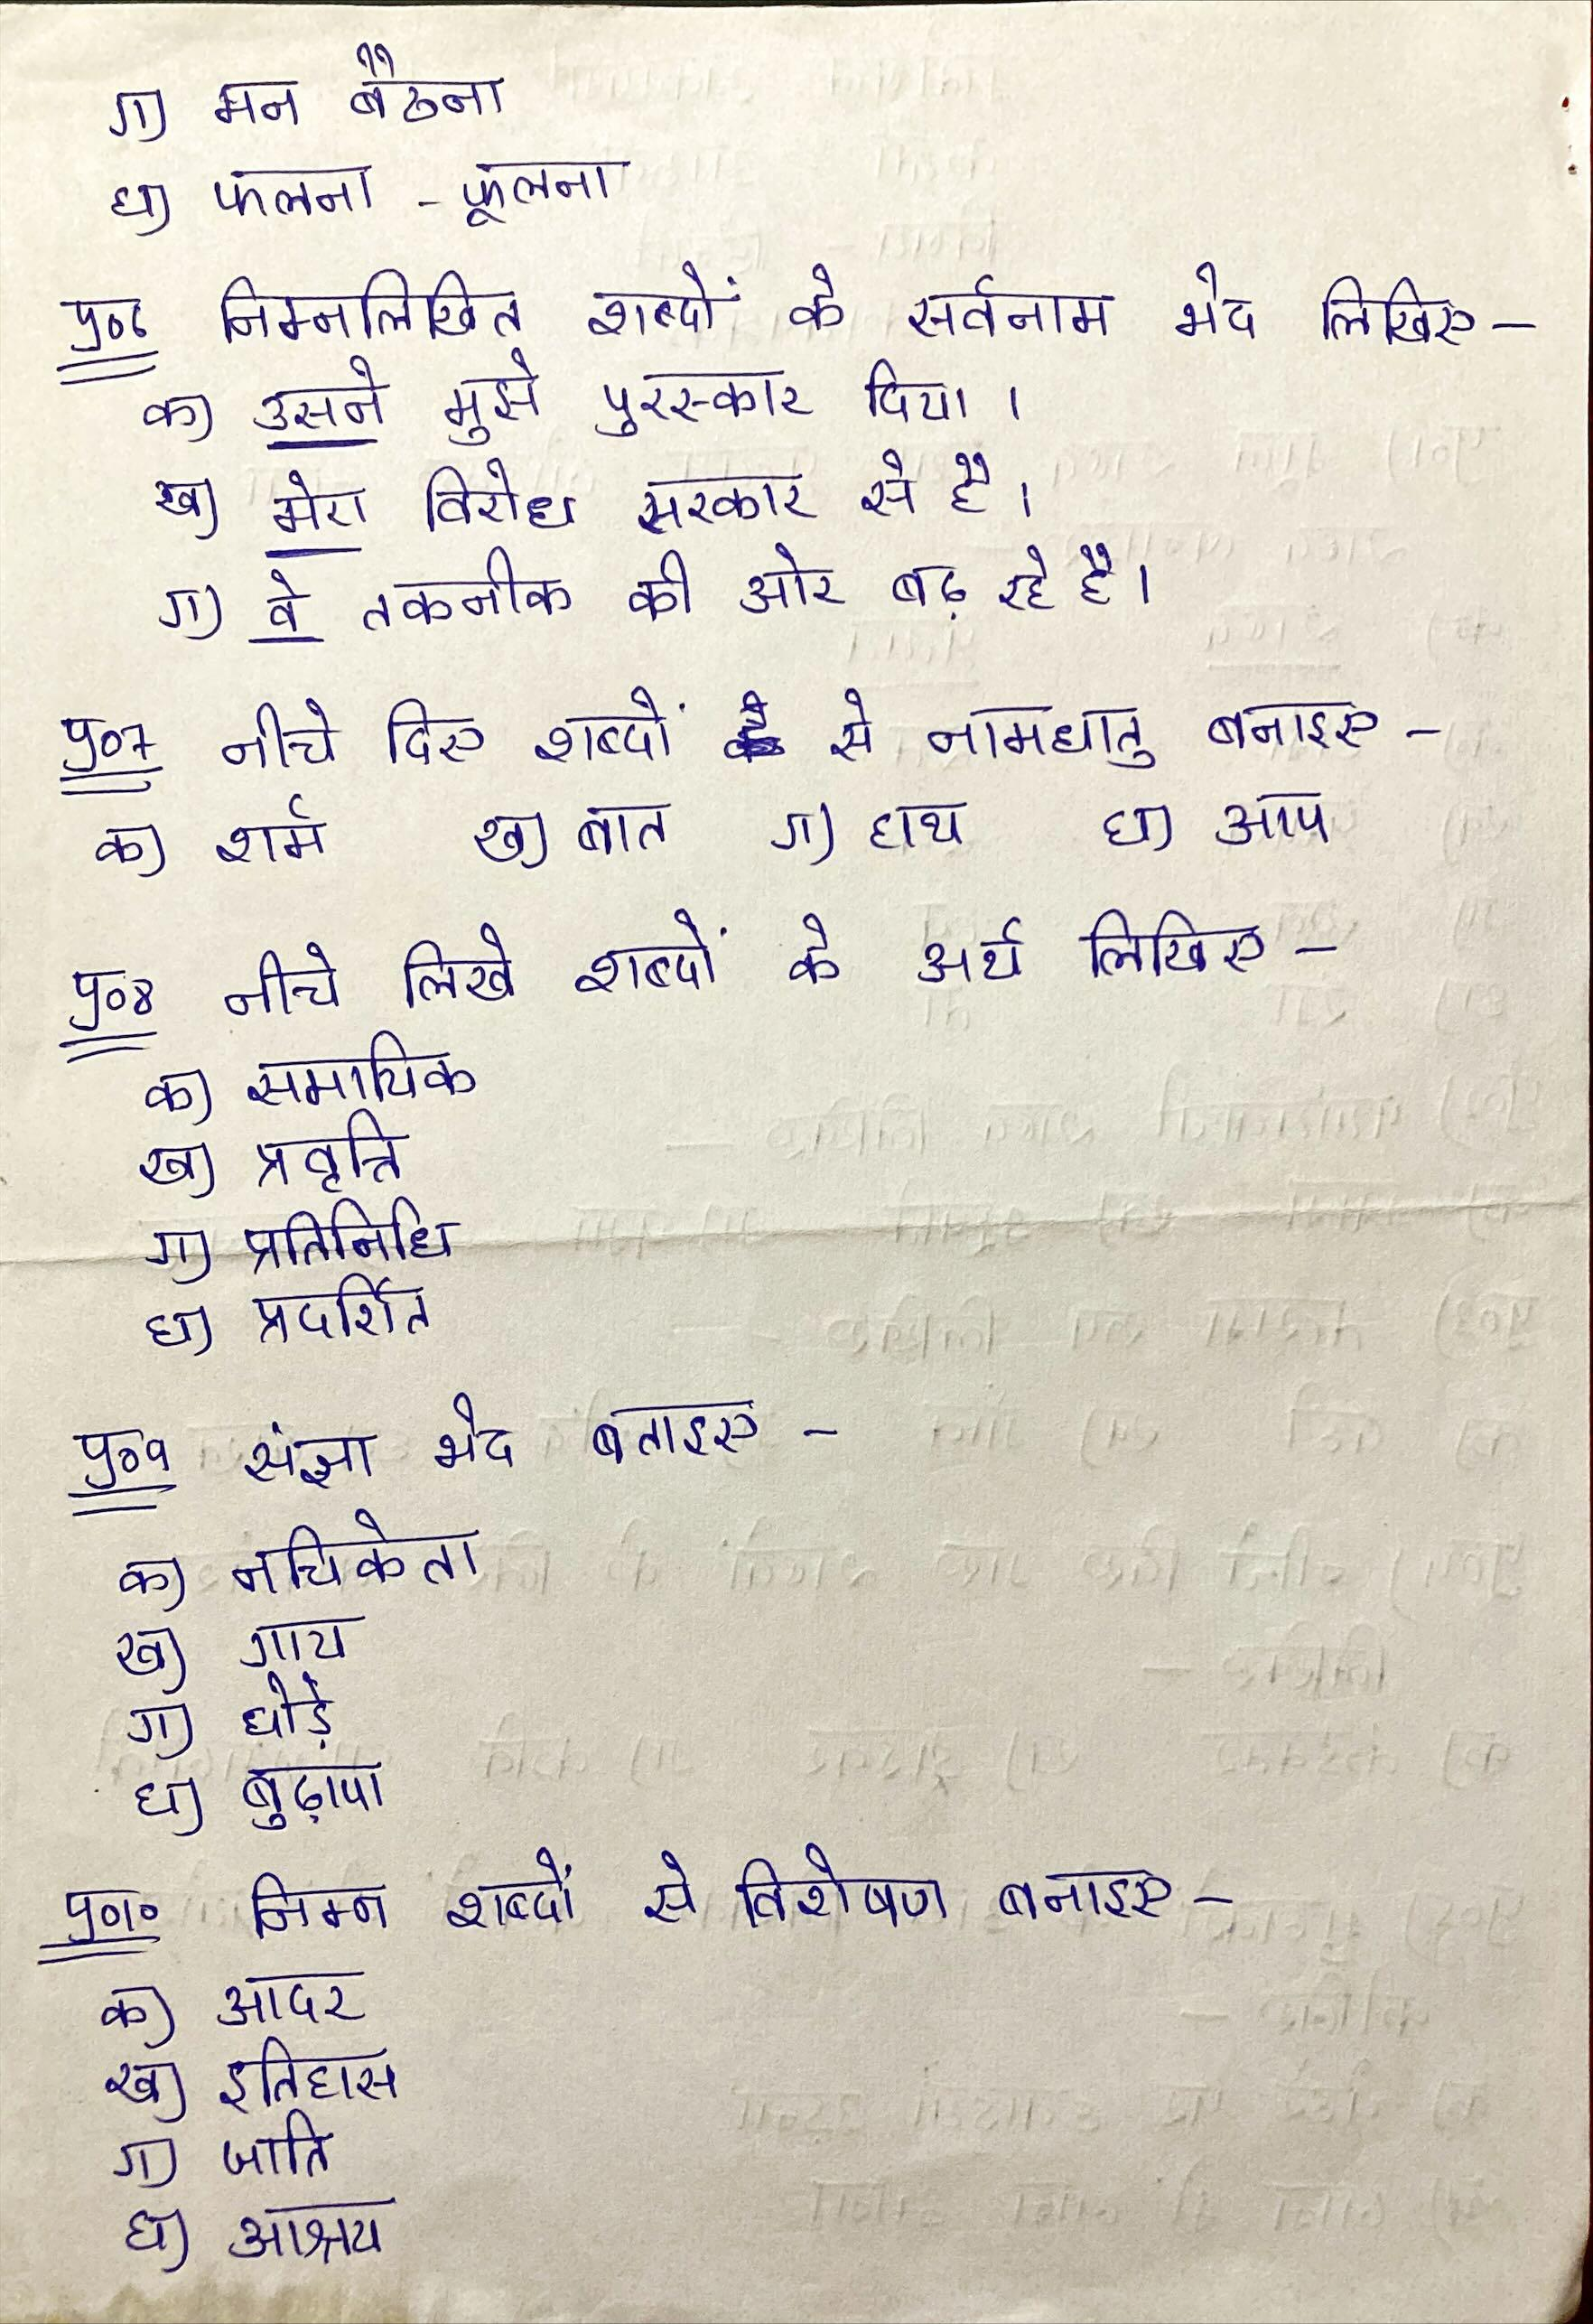 ग) मन बैठना
घ) फलना - फूलना
प्र०6 निम्नलिखित शब्दों के सर्वनाम भेद लिखिए -
क) उसने मुझे पुरस्कार दिया ।
ख) मेरा विरोध सरकार से है ।
ग) वे तकनीक की ओर बढ़ रहे है ।
प्र०7 नीचे दिए शब्दों से नामधातु बनाइए -
क) शर्म ख) बात ग) हाथ घ) आप
प्र०8 नीचे लिखे शब्दों के अर्थ लिखिए -
क) समायिक
ख) प्रवृत्ति
ग) प्रतिनिधि
घ) प्रदर्शित
प्र०9 संज्ञा भेद बताइए -
क) नचिकेता
ख) गाय
ग) घोड़े
घ) बुढ़ापा
प्र०10 निम्न शब्दों से विशेषण बनाइए -
क) आदर
ख) इतिहास
ग) जाति
घ) आश्रय